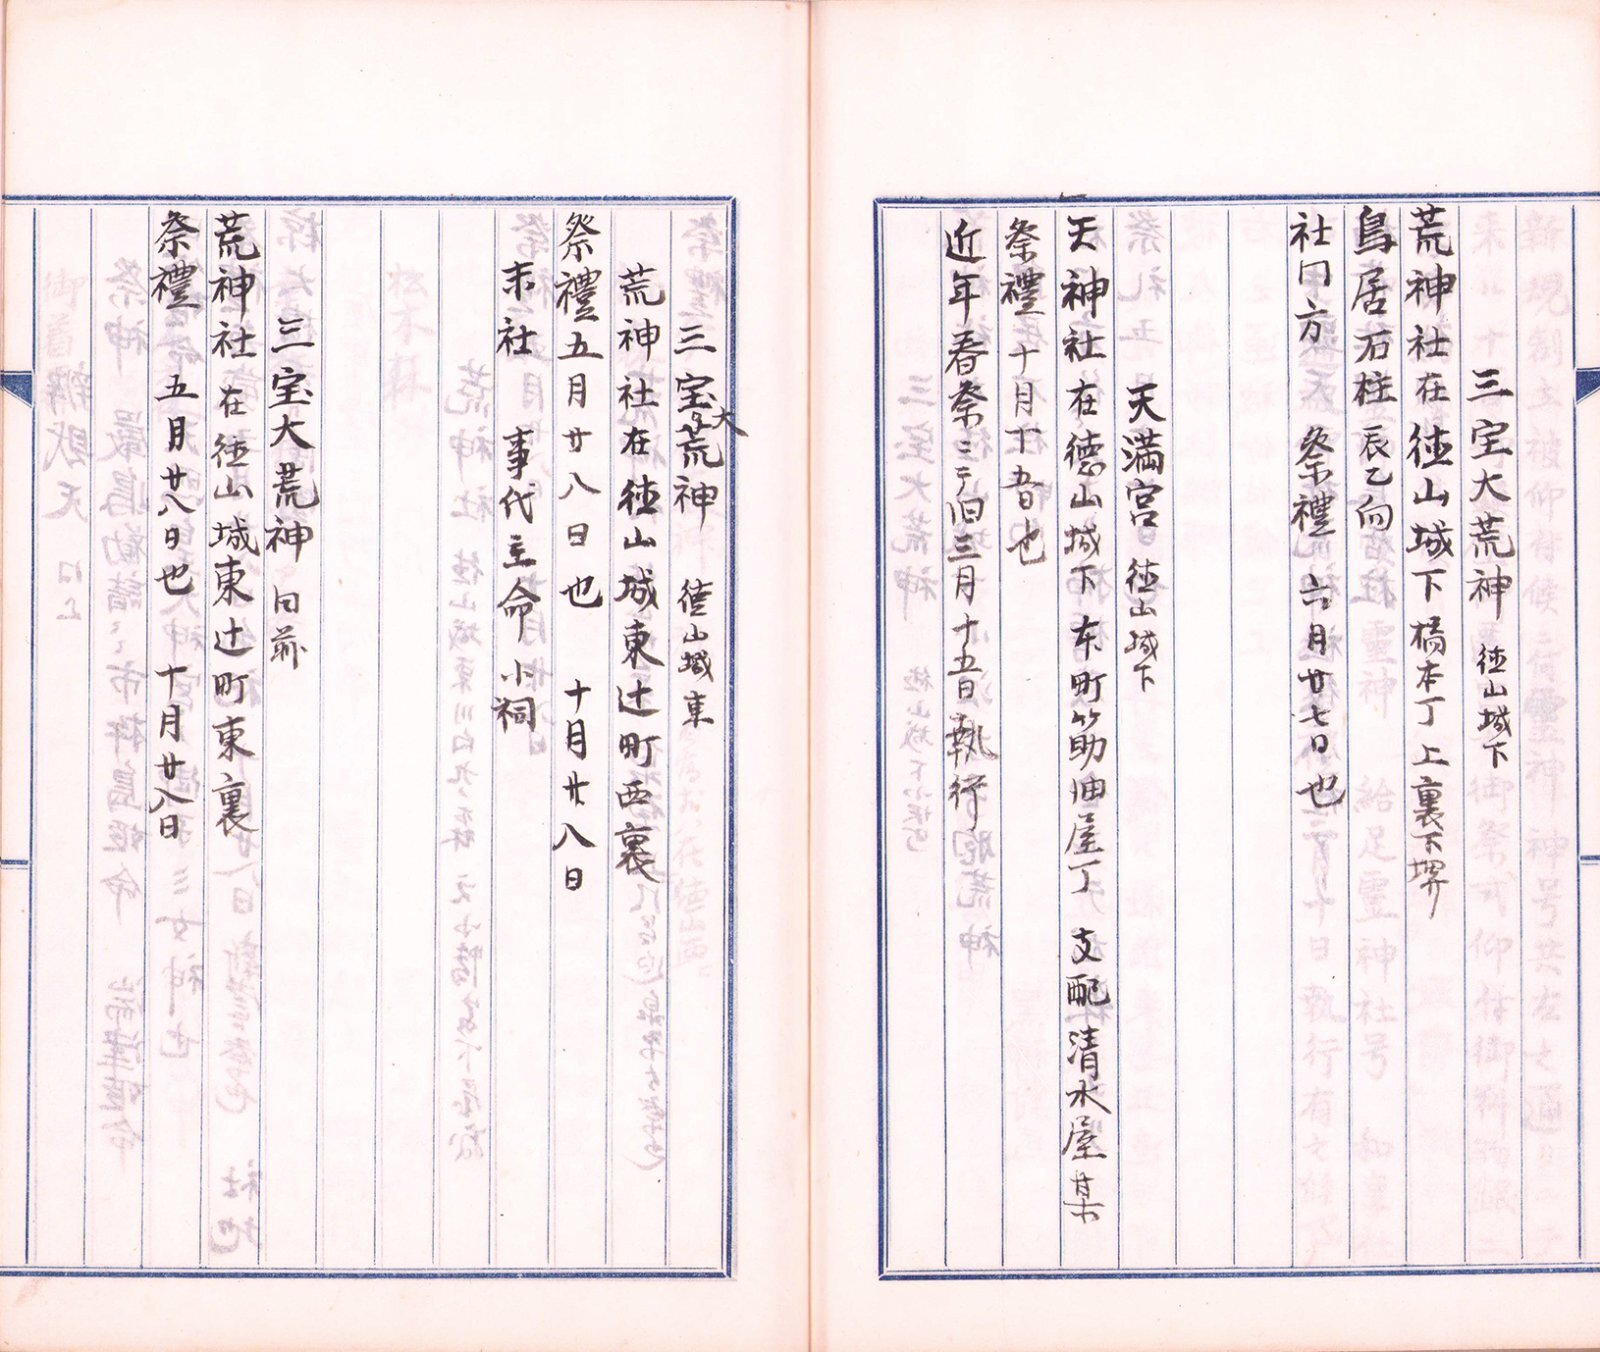 三宝大荒神 徳山城下
荒神社在徳山城下橋本丁上裏下堺
鳥居石柱 辰乙向
社門方 祭禮 六月廿七日也
天満宮 徳山城下
天神社在徳山城下本町筋油屋丁 支配清水屋某
祭禮 十月十五日也
近年春祭ミテ旧三月十五日執行
三宝大荒神 徳山城東
荒神社在徳山城東辻町西裏
祭禮五月廿八日也 十月廿八日
末社 事代主命 小祠
三宝大荒神 同前
荒神社 在徳山城東辻町東裏
祭禮 五月廿八日也 十月廿八日